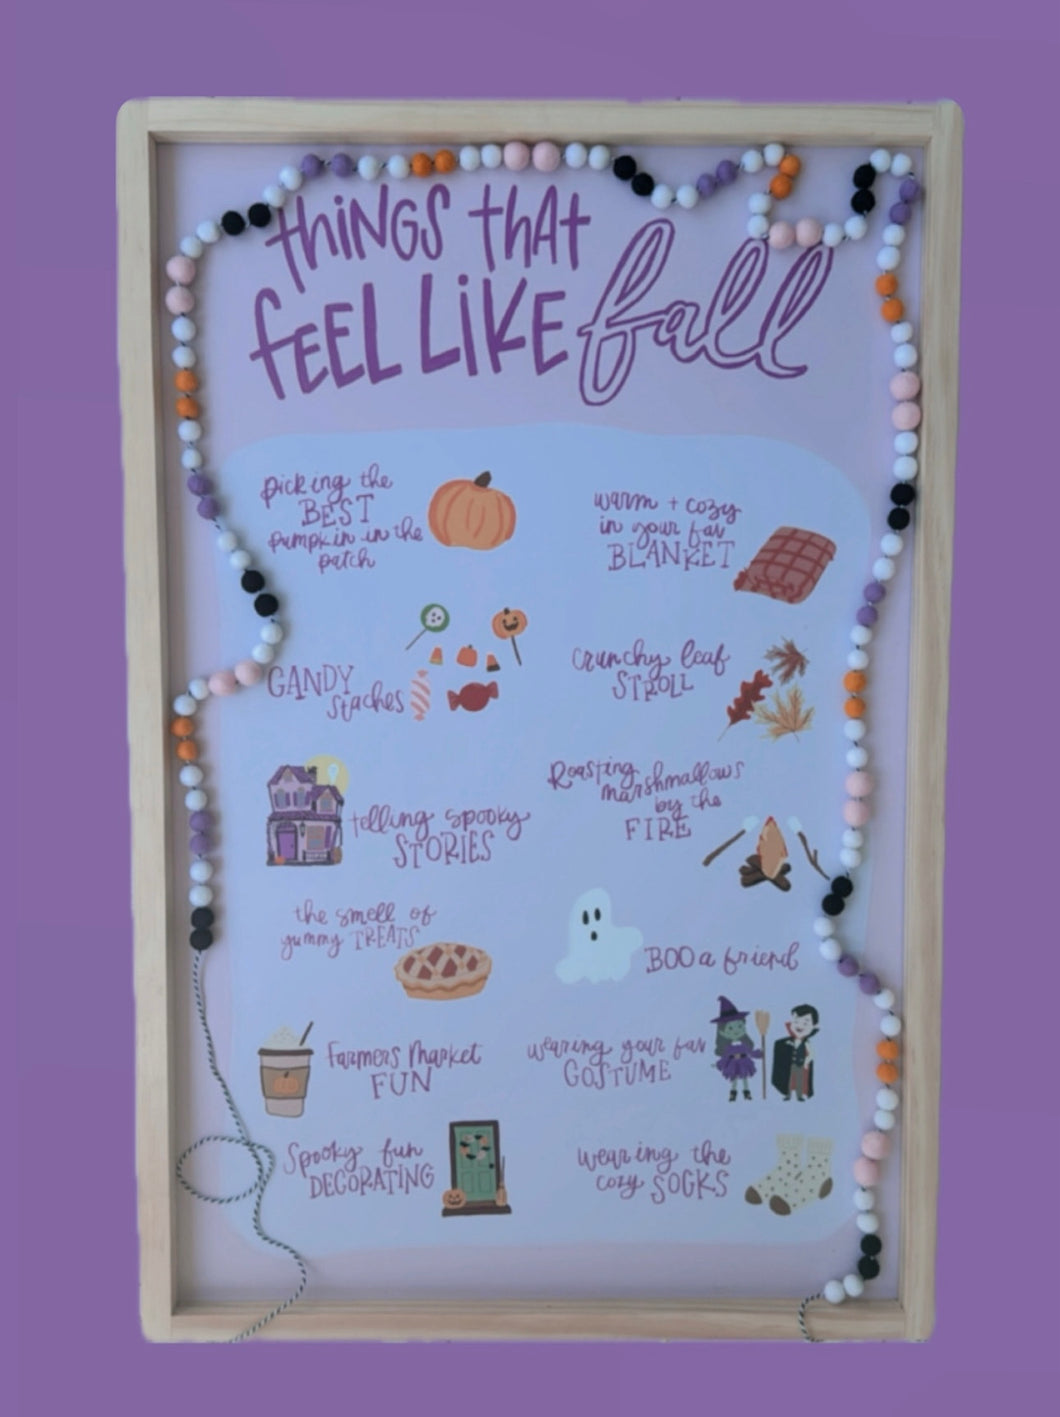 things that
feel like fall
picking the
BEST
pumpkin in the
patch
warm + cozy
in your fav
BLANKET
CANDY
staches
crunchy leaf
STROLL
telling spooky
STORIES
Roasting
marshmallows
by the
FIRE
the smell of
yummy TREATS
BOO a friend
Farmers Market
FUN
wearing your fav
COSTUME
Spooky fun
DECORATING
wearing the
cozy SOCKS